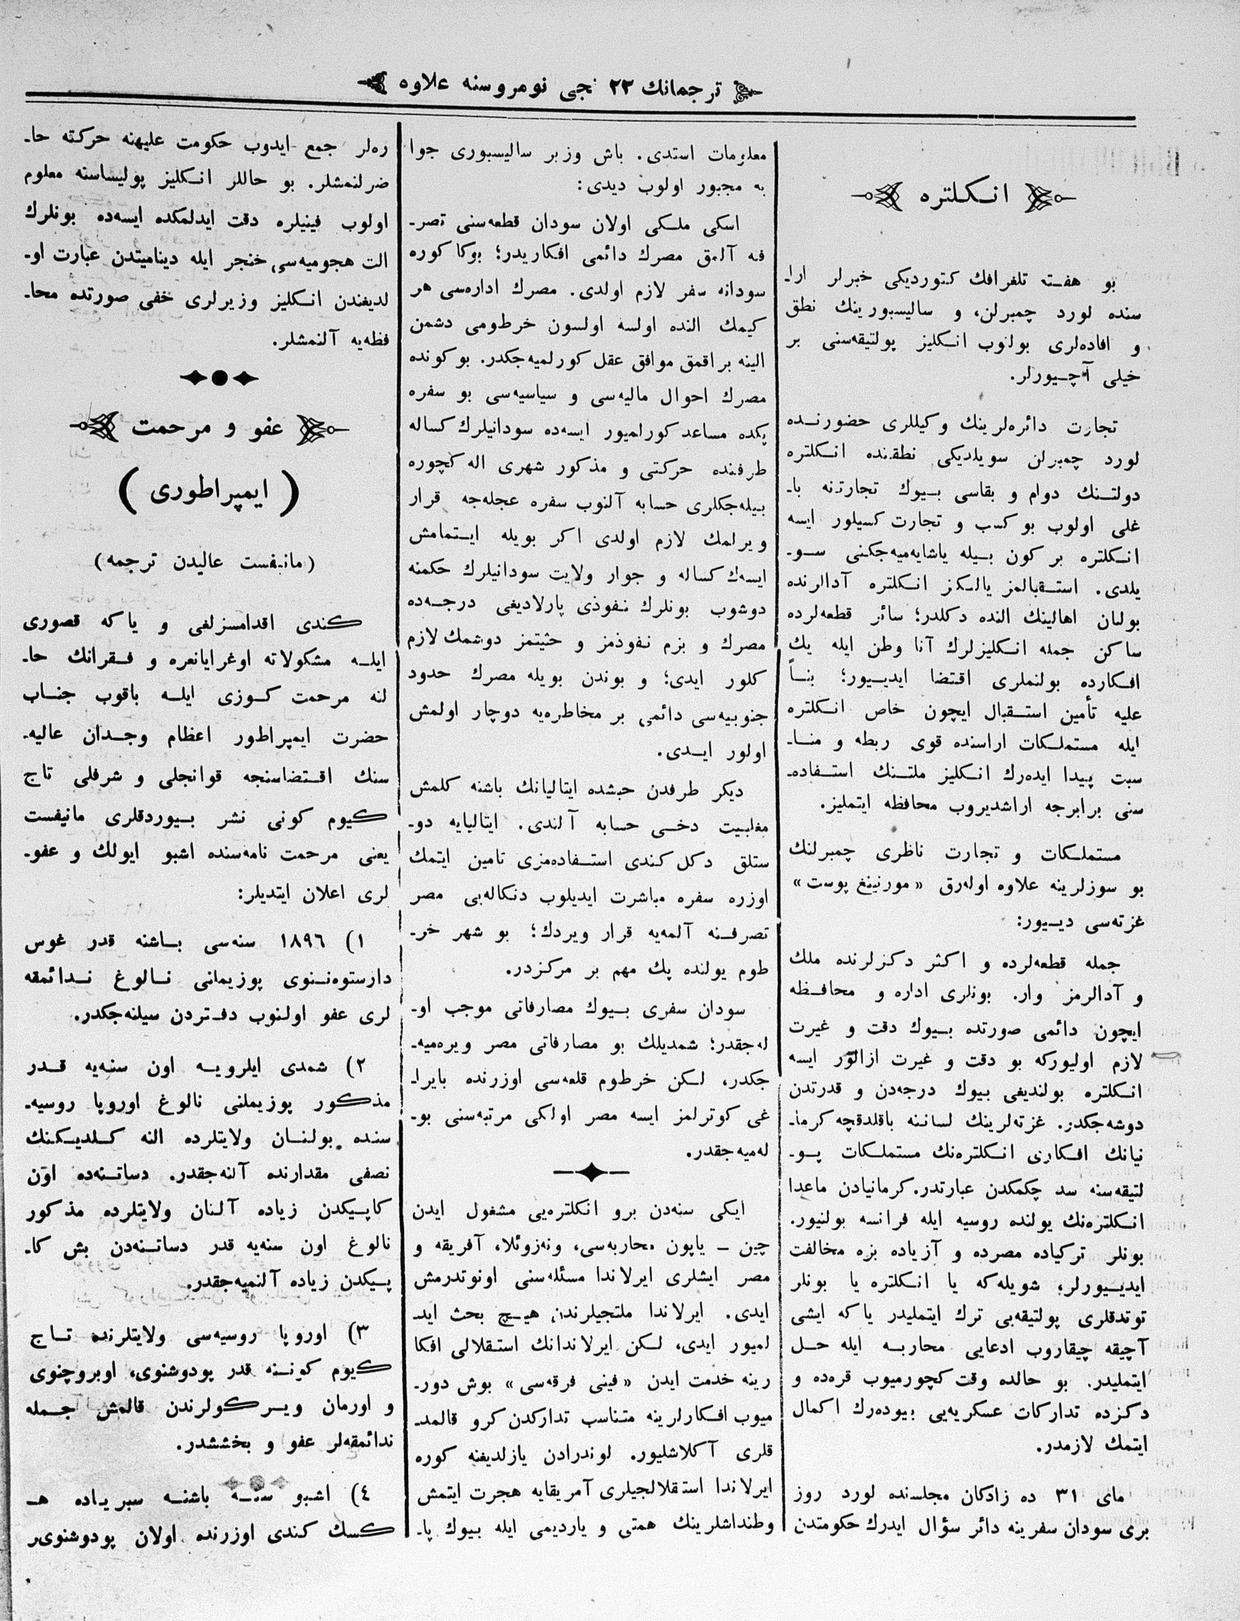 ترجمانك ٢٣ نجی نومروسنه علاوه
انـكـلتره
بو هفته تلغرافك كتوردیكی خبرلر ارا۔
سنده لورد چمبرلن، و سالیسبورینك نطق
و افاده‌لری بولنوب انـكلیز پولتیقه‌سنی بر
خیلی آچـیورلر.
تجارت دائره‌لرینك وكیللری حضورنـده
لورد چمبرلن سویلدیكی نطقنده انـكلتره
دولتـنك دوام و بقاسی بـیوك تجارتنه با۔
غلی اولوب بو كسب و تجارت كسیلور ایسه
انـكلتره بر كون بـیله یاشایه‌میه‌جكنی سـو۔
یلدی. استـقبالمز یالـكز انـكلتره آدالرنده
بولنان اهالینك النده دكلدر؛ سائر قطعه‌لرده
ساكن جمله انـكلیزلرك آنا وطن ایله یك
افـكارده بولنملری اقـتضا ایدیـیور؛ بنـاً
علیه تأمین استـقبال ایچون خاص انـكلتره
ایله مستملـكات اراسنده قوی ربطه و منـا۔
سبت پیدا ایده‌رك انـكلیز ملتـنك استـفاده۔
سنی برابرجه اراشدیروب محافظه ایتملیز.
مستملـكات و تجارت ناظری چمبرلنك
بو سوزلرینه علاوه اوله‌رق «مورنینغ پوست»
غزته‌سی دیـیور:
جمله قطعه‌لرده و اكثر دكزلرنده ملك
و آدالرمز وار. بونلری اداره و محافـظه
ایچون دائمی صورتده بـیوك دقت و غیرت
لازم اولیوركه بو دقت و غیرت ازالور ایسه
انـكلتره بولندیغی بیوك درجه‌دن و قدرتدن
دوشه‌جكدر. غزته‌لرینك لساننه باقلدقچه كرما۔
نیانك افـكاری انـكلتره‌نك مستملـكات پـو۔
لتیقه‌سنه سد چكمكدن عبارتدر. كرمانیادن ماعدا
انـكلتره‌نك یولنده روسیه ایله فرانسه بولنیور.
بونلر تركیاده مصرده و آزیاده بزه مخالفت
ایدیـیورلر؛ شویله‌كه یا انـكلتره یا بونلر
توتدقلری پولتیقه‌یی ترك ایتملیدر یاكه ایشی
آچیقه چیقاروب ادعایی محاربـه ایله حـل
ایتملیدر. بو حالده وقت كچورمیوب قره‌ده و
دكزده تداركات عسكریه‌یی بیوده‌رك اكمال
ایتمك لازمدر.
مای ٣١ ده زادكان مجلسنده لورد روز
بری سودان سفرینه دائر سؤال ایدرك حكومتدن
معلومات استدی. باش وزیر سالیسبوری جوا
به مجبور اولوب دیدی:
اسكی ملـكی اولان سودان قطعه‌سنی تصر۔
فه آلمق مصرك دائمی افكاریدر؛ بوكا كوره
سودانه سفر لازم اولدی. مصرك اداره‌سی هر
كیمك النده اولسه اولسون خرطومی دشمن
الینه براقمق موافق عقل كورلمیه‌جكدر. بو كونده
مصرك احوال مالیه‌سی و سیاسیه‌سی بو سفره
پكده مساعد كورلمیور ایسه‌ده سودانیلرك كساله
طرفنده حركتی و مذكور شهری اله كچوره
بیله‌جكلری حسابه آلنوب سفره عجله‌جه قرار
ویرلمك لازم اولدی اكر بویله ایـتمامش
ایسه‌ك كساله و جوار ولایت سودانیلرك حكمنه
دوشوب بونلرك نـفوذی پارلادیغی درجـه‌ده
مصرك و بزم نـفوذمز و حیثتمز دوشمك لازم
كلور ایدی؛ و بوندن بویله مصرك حدود
جنوبیه‌سی دائمی بر مخاطره‌یه دوچار اولمش
اولور ایـدی.
دیكر طرفدن حبشده ایتالیانك باشنه كلمش
مغلبیت دخـی حسابه آلندی. ایتالیایه دو۔
ستلق دكل كندی استـفاده‌مزی تامین ایتمك
اوزره سفره مباشرت ایدیلوب دنكاله‌یی مصر
تصرفـنه آلمه‌یه قرار ویردك؛ بو شهر خر۔
طوم یولنده پك مهم بر مركزدر.
سودان سفری بـیوك مصارفاتی موجب او۔
له‌جقدر؛ شمدیلك بو مصارفاتی مصر ویره‌میه۔
جكدر، لـكن خرطوم قلعه‌سی اوزرنده بایرا۔
غی كوترلمز ایسه مصر اولكی مرتبه‌سنی بو۔
له‌میه‌جقدر.
ایكی سنه‌دن برو انـكلتره‌یی مشغول ایدن
چین ـ یاپون محاربه‌سی، ونه‌زوئلا، آفریقه و
مصر ایشلری ایرلاندا مسئله‌سنی اونوتدرمش
ایدی. ایرلاندا ملتجیلرندن هیـچ بحث ایدـ
لمیور ایدی، لـكن ایرلاندانك استـقلالی افكا
رینه خدمت ایدن «فینی فرقه‌سی» بوش دور۔
میوب افـكارلرینه متناسب تداركدن كرو قالمد۔
قلری آكلاشلیور. لوندرادن یازلدیغنه كوره
ایرلاندا استـقلالجیلری آمریقایه هجرت ایتمش
وطنداشلرینك همتی و یاردیمی ایله بـیوك پا۔
ره‌لر جمع ایدوب حكومت علیهنه حركته حا۔
ضرلنمشلر. بو حاللر انـكلیز پولیساسنه معلوم
اولوب فینیلره دقت ایدلمكده ایسه‌ده بونلرك
الت هجومیه‌سی خنجر ایله دینامیتدن عبارت او۔
لدیغندن انـكلیز وزیرلری خفی صورتده محا۔
فظه‌یه آلنمشلر.
عفو و مرحمت
( ایمپراطوری )
(مانیفست عالیدن ترجمه)
كندی اقدامسزلغی و یاكه قصوری
ایلـه مشكولاته اوغرایانلره و فـقرانك حا۔
لنه مرحمت كـوزی ایلـه باقوب جنـاب
حضرت ایمپراطور اعظام وجـدان عالیه۔
سنك اقـتضاسنجه قوانجلی و شرفلی تاج
كیوم كونی نشر بـیوردقلری مانیفست
یعنی مرحمت نامه‌سنده اشبو ایولك و عفو۔
لری اعلان ایتدیلر:
١) ١٨٩٦ سنه‌سی بـاشنه قدر غوس
دارستوه‌نـنوی پوزیمانی نـالوغ نـدائمقه
لری عفو اولنوب دفـتردن سیلنه‌جكدر.
٢) شمدی ایلرویـه اون سنه‌یه قـدر
مذكور پوزیملنی نالوغ اوروپا روسیه۔
سنده بولنـان ولایتلرده النه كـلدیـكنك
نصفی مقدارنده آلنه‌جقدر. دساتـنه‌ده اون
كاپیكدن زیاده آلـنان ولایتلرده مذكور
نالوغ اون سنه‌یه قدر دساتـنه‌دن بش كا۔
پـیكدن زیاده آلنمیه‌جقدر.
٣) اوروپا روسیه‌سی ولایتلرنده تـاج
كیوم كونـنه قدر پودوشنوی، اوبروچنوی
و اورمان ویـركولرندن قالمش جـمله
ندائمقه‌لر عفو و بخششدر.
٤) اشبو سنـه باشنـه سبریـاده هـ
كسك كندی اوزرنده اولان پودوشنوی‌ر